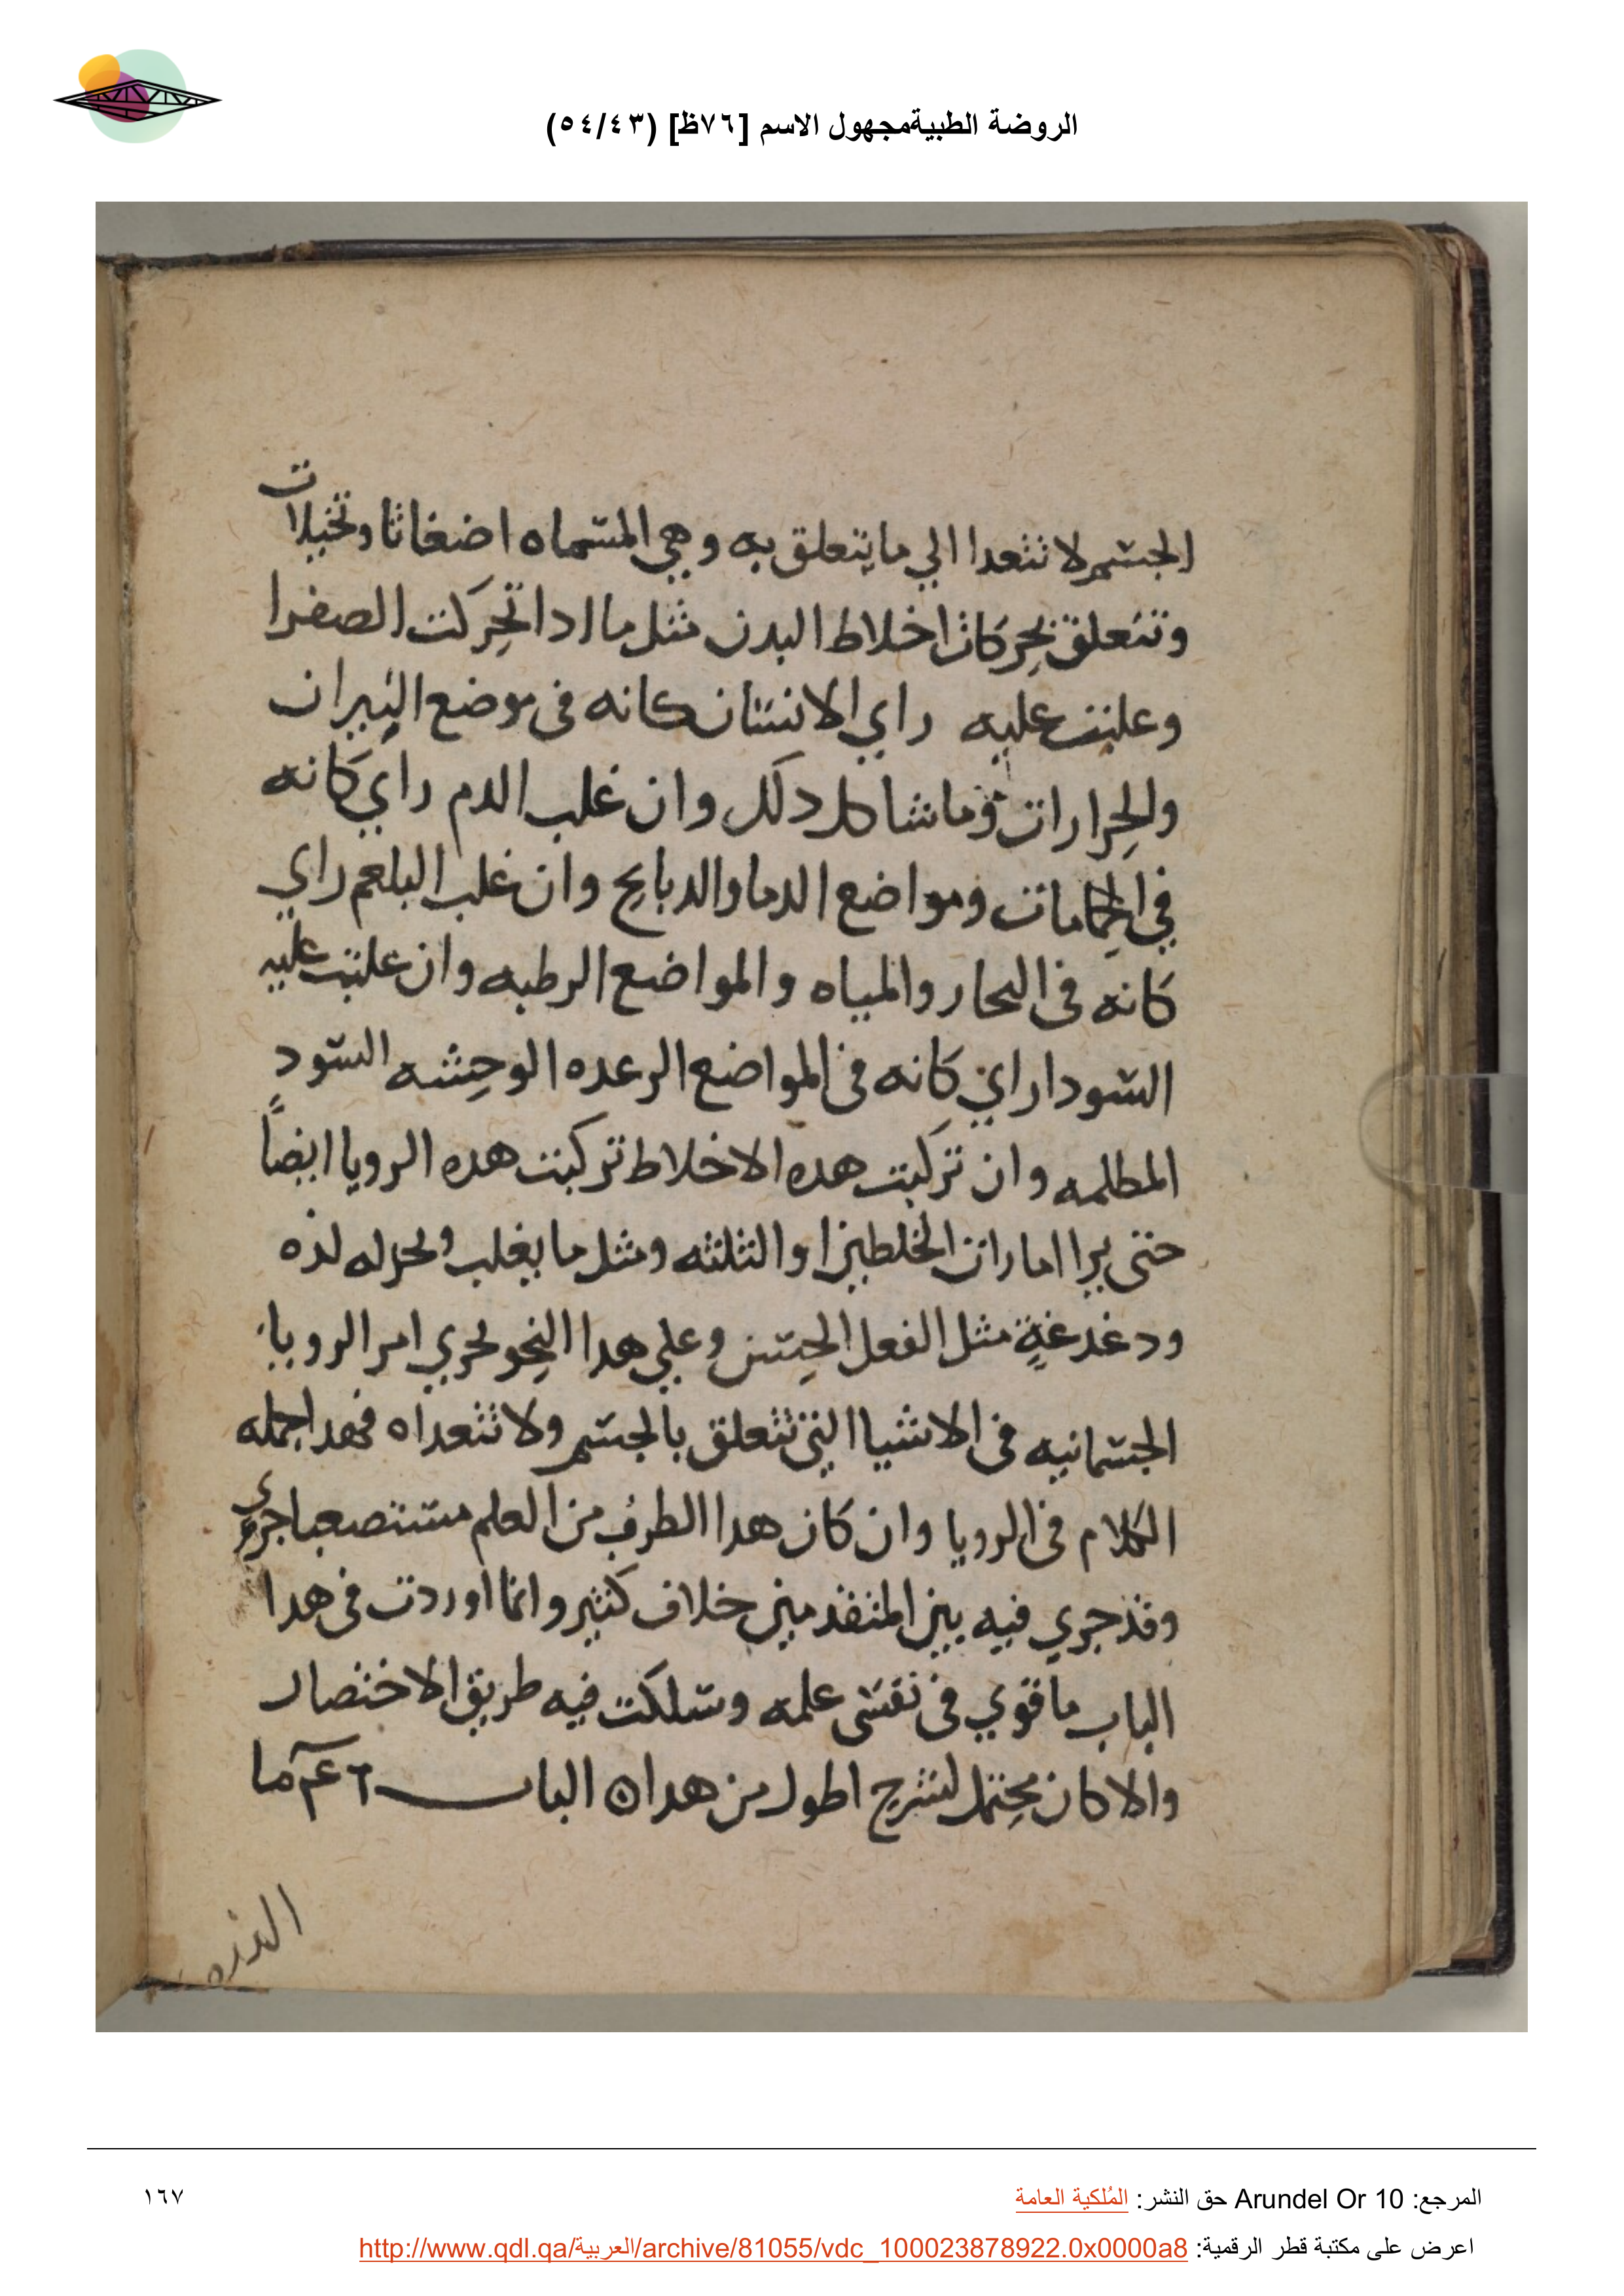 الروضة الطبيةمجهول الاسم [٧٦ظ] (٥٤/٤٣)
الجسم لا تتعدا الي ما يتعلق به وهي المسماه اضغاثا وتخيلات
وتتعلق بحركات اخلاط البدن مثل ما ادا تحركت الصفرا
وعلبت عليه راي الانسان كانه في موضع النيران
والحرارات وما شاكل دلك وان غلب الدم راي كانه
في الحمامات ومواضع الدما والدبايح وان غلب البلغم راي
كانه في البحار والمياه والمواضع الرطبه وان علبت عليه
السودا راي كانه في المواضع الرعده الوحشه السود
المطلمه وان تركبت هده الاخلاط تركبت هده الرويا ايضاً
حتى يرا امارات الخلطين او الثلثه ومثل ما يغلب له لذه
ودغدغةٍ مثل الفعل الحسن وعلي هدا النحو يجري امر الرويا
الجسمانيه في الاشيا التي تتعلق بالجسم ولا تتعداه فهدا جمله
الكلام في الرويا وان كان هدا الطرف من العلم مستصعبا
وقد جري فيه بين المتقدمين خلاف كثير وانما اوردت في هدا
الباب ما قوي في نفسى علمه وسلكت فيه طريق الاختصار
والا كان يحتمل لشرح اطول من هدا ۞ الباب ما
المرجع: Arundel Or 10 حق النشر: المُلكية العامة
١٦٧
اعرض على مكتبة قطر الرقمية: http://www.qdl.qa/العربية/archive/81055/vdc_100023878922.0x0000a8